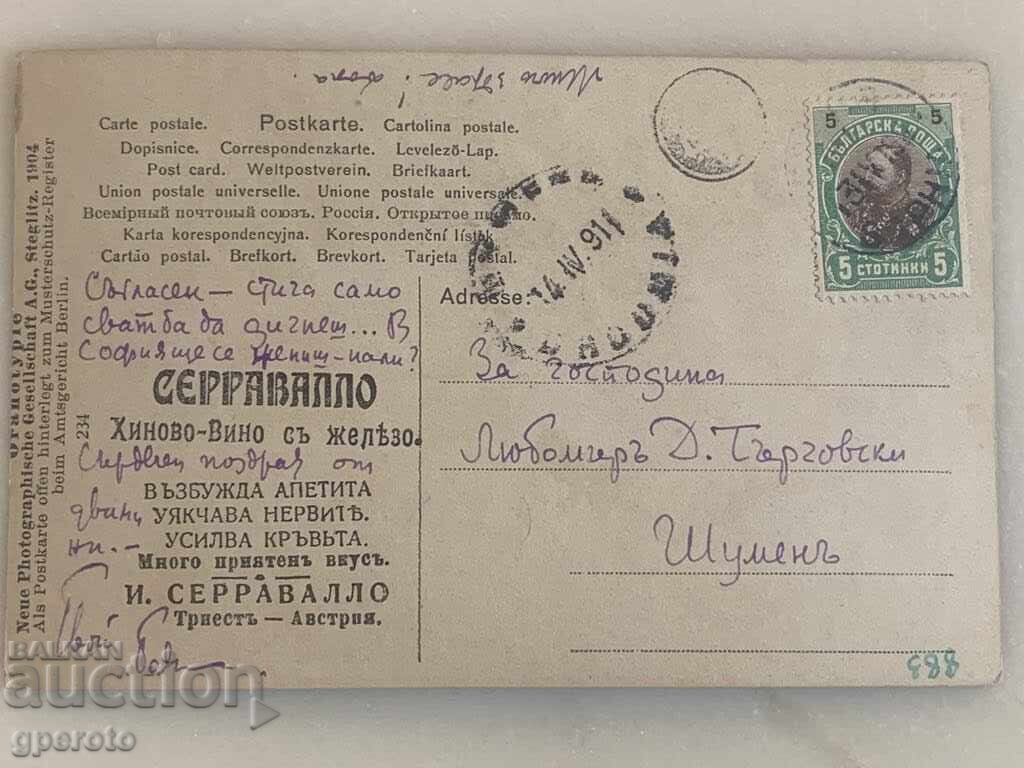 5 5
БЪЛГАРСКА ПОЩА
5 СТОТИНКИ 5
Carte postale. Postkarte. Cartolina postale.
Dopisnice. Correspondenzkarte. Levelező-Lap.
Post card. Weltpostverein. Briefkaart.
Union postale universelle. Unione postale universale.
Всемірный почтовый союзъ. Россія. Открытое письмо.
Karta korespondencyjna. Korespondenční lístek.
Cartão postal. Brefkort. Brevkort. Tarjeta postal.
14.IV.911
Съгласен – стига само
сватба да дигнеш... В
София ще се жениш – нали?
СЕРРАВАЛЛО
Хиново-Вино съ желѣзо.
Сърдечен поздрав от
ВЪЗБУЖДА АПЕТИТА
двама
УЯКЧАВА НЕРВИТѢ.
ни. –
УСИЛВА КРЪВЬТА.
Много приятенъ вкусъ.
И. СЕРРАВАЛЛО
Триестъ — Австрия.
Твой
Adresse:
За господина
Любомиръ Д. Търговски
Шуменъ
883
Neue Photographische Gesellschaft A.G., Steglitz. 1904
Als Postkarte offen hinterlegt zum Musterschutz-Register
beim Amtsgericht Berlin.
234
BALKAN
auction
gperoto